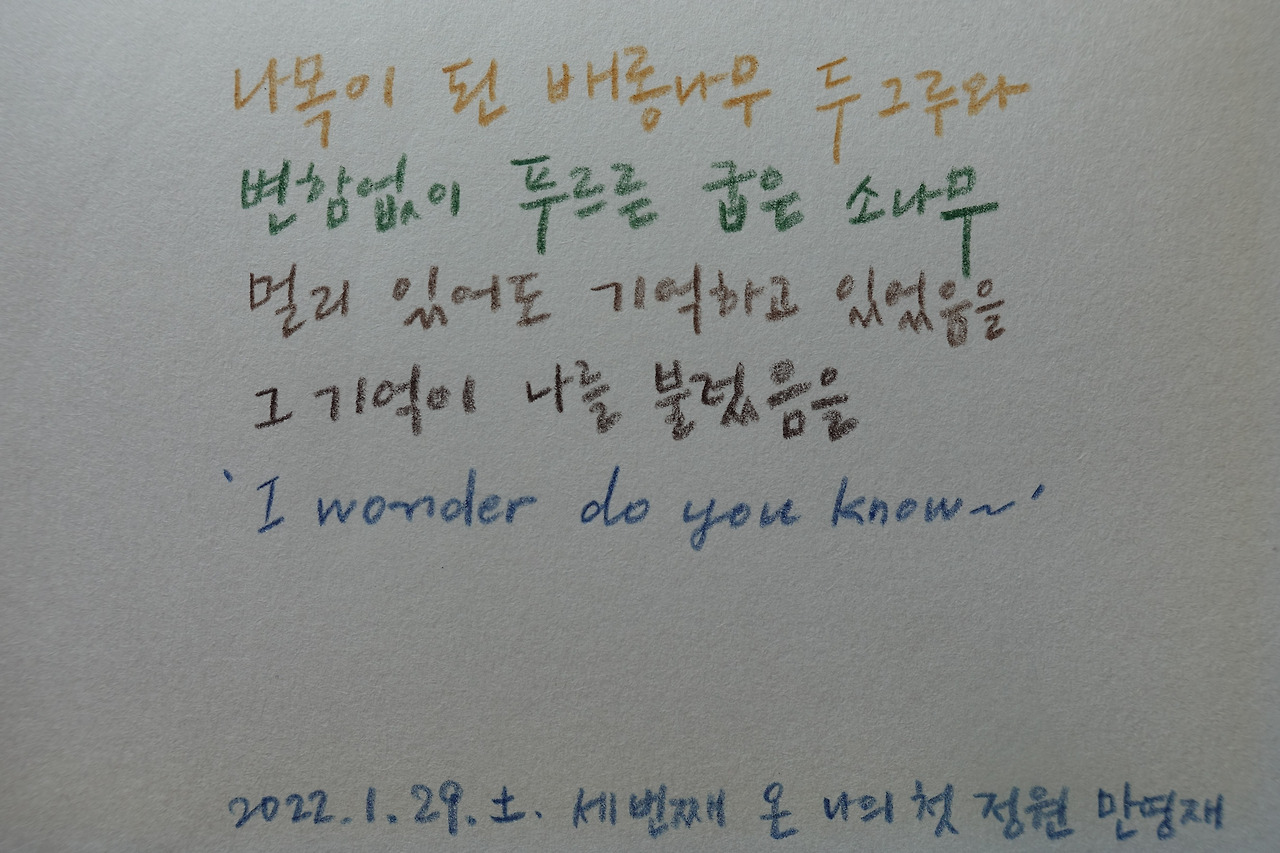 나목이 된 배롱나무 두그루와
변함없이 푸르른 굽은 소나무
멀리 있어도 기억하고 있었음을
그 기억이 나를 불렀음을
'I wonder do you know~'
2022.1.29.土. 세번째 온 나의 첫 정원 만영재